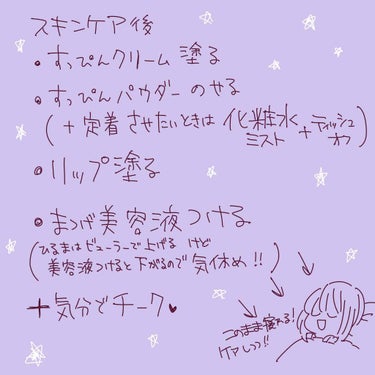 スキンケア後
・すっぴんクリーム塗る
・すっぴんパウダーのせる
(+定着させたいときは化粧水ミスト+ティッシュオフ)
・リップ塗る
・まつげ美容液つける
(ひるまはビューラーで上げるけど
美容液つけると下がるので気休め!!)
+気分でチーク♥
このまま寝れる!
ケアしつつ!!